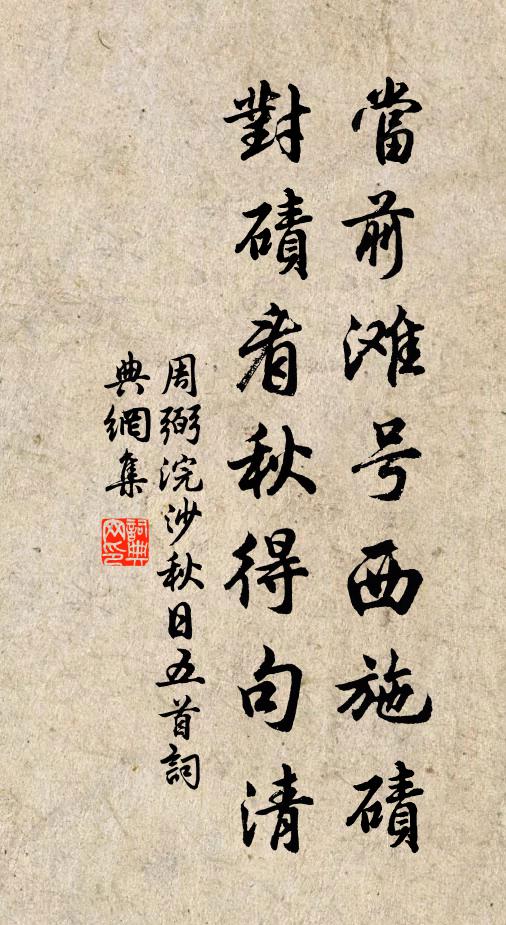 當前滩号西施磧
對磧看秋得句清
周弼浣沙秋日五首詞
典網集
詞典网印